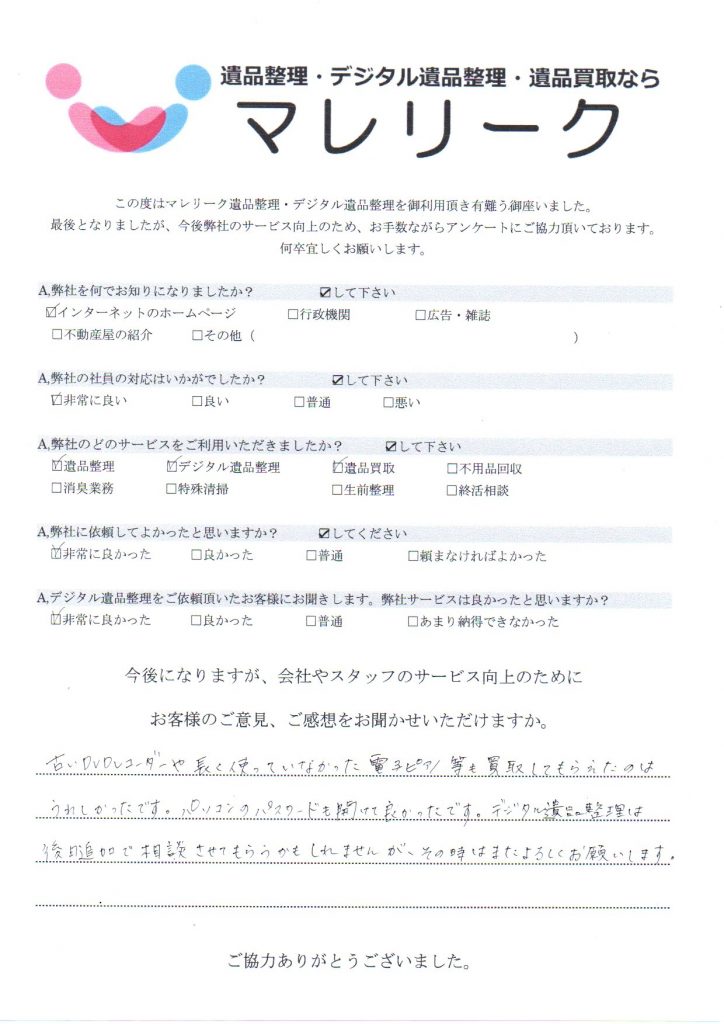 遺品整理・デジタル遺品整理・遺品買取なら
マレリーク
この度はマレリーク遺品整理・デジタル遺品整理を御利用頂き有難う御座いました。
最後となりましたが、今後弊社のサービス向上のため、お手数ながらアンケートにご協力頂いております。
何卒宜しくお願いします。
A,弊社を何でお知りになりましたか？ ☑して下さい
☑インターネットのホームページ □行政機関 □広告・雑誌
□不動産屋の紹介 □その他（ ）
A,弊社の社員の対応はいかがでしたか？ ☑して下さい
☑非常に良い □良い □普通 □悪い
A,弊社のどのサービスをご利用いただきましたか？ ☑して下さい
☑遺品整理 ☑デジタル遺品整理 ☑遺品買取 □不用品回収
□消臭業務 □特殊清掃 □生前整理 □終活相談
A,弊社に依頼してよかったと思いますか？ ☑してください
☑非常に良かった □良かった □普通 □頼まなければよかった
A,デジタル遺品整理をご依頼頂いたお客様にお聞きします。弊社サービスは良かったと思いますか？
☑非常に良かった □良かった □普通 □あまり納得できなかった
今後になりますが、会社やスタッフのサービス向上のために
お客様のご意見、ご感想をお聞かせいただけますか。
古いDVDレコーダーや長く使っていなかった電子ピアノ等も買取してもらえたのは
うれしかったです。パソコンのパスワードも開けて良かったです。デジタル遺品整理は
後日追加で相談させてもらうかもしれませんが、その時はまたよろしくお願いします。
ご協力ありがとうございました。